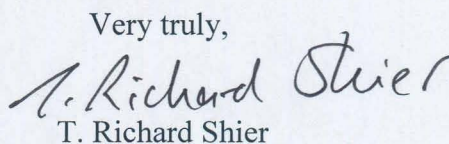 Very truly,
T. Richard Shier
T. Richard Shier